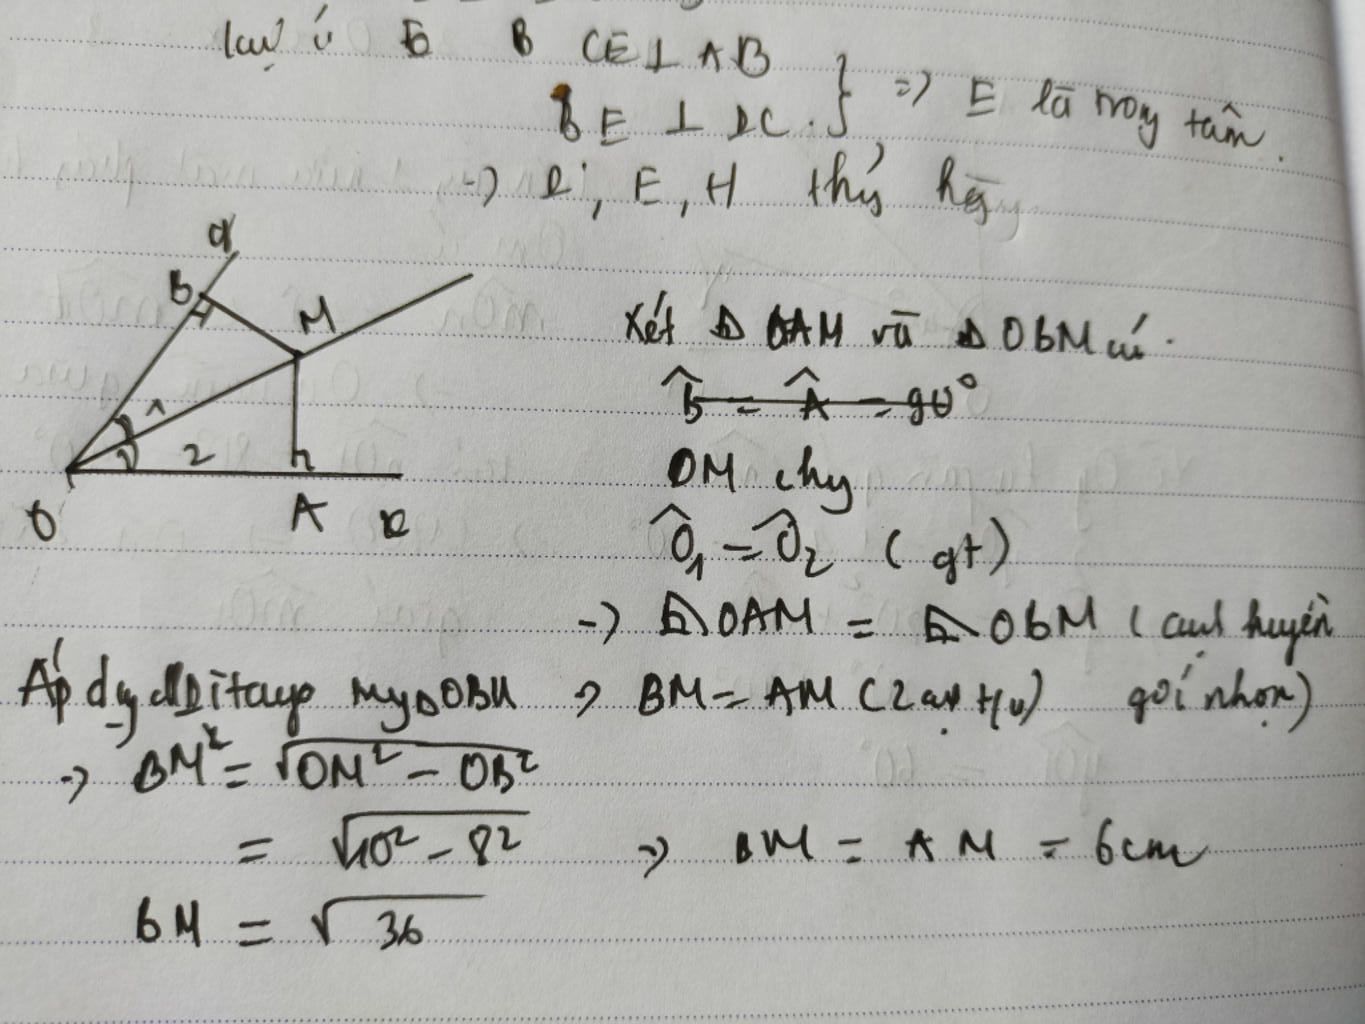 E B CE ⊥ AB
BE ⊥ DC } => E là trọng tâm.
-> D, E, H thẳng hàng
y
B
M
1
2
O
A
x
Xét Δ OAM và Δ OBM có
B̂ = Â = 90°
OM chg
Ô1 = Ô2 (gt)
-> Δ OAM = Δ OBM (cạnh huyền
góc nhọn)
=> BM = AM (2 cạnh t/ư)
Áp dg đl Pitago trong Δ OBM
-> BM² = √OM² - OB²
= √10² - 8²
BM = √36
=> BM = AM = 6cm